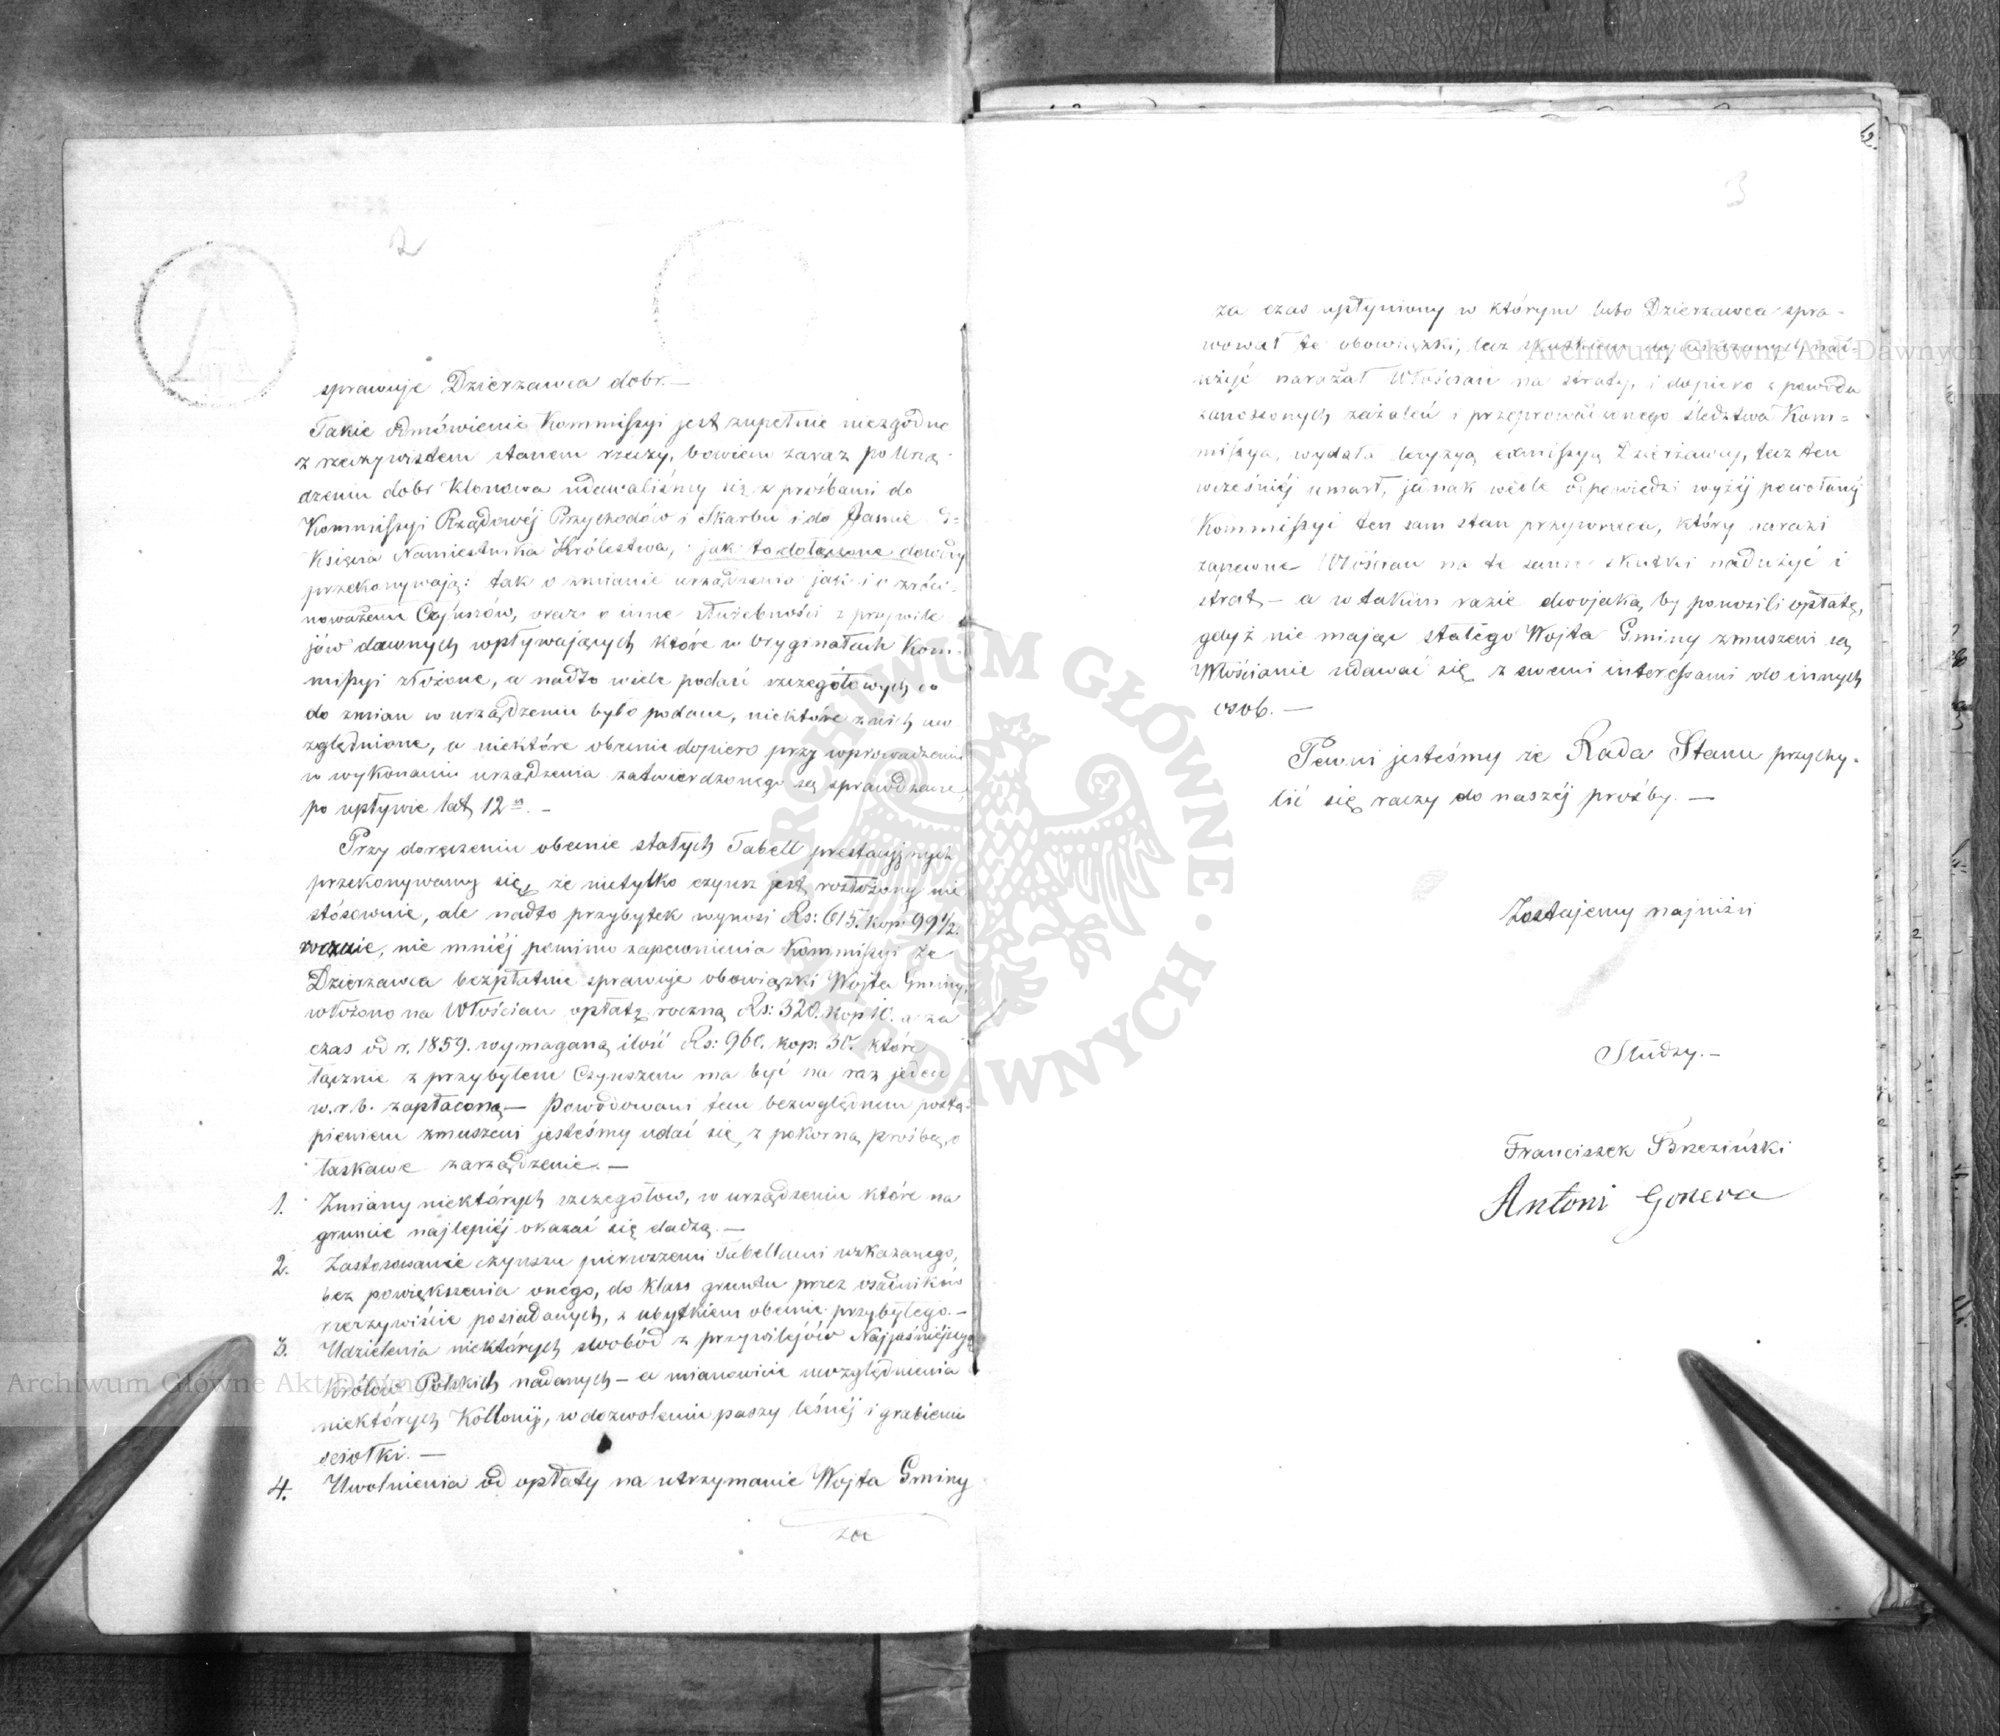 2
sprawuje Dzierzawca dobr. —
Takie odmówienie Kommissyi jest zupełnie niezgodne
z rzeczywistem stanem rzeczy, bowiem zaraz po Urzą-
dzeniu dobr Klonowa udawaliśmy się z prośbami do
Kommissyi Rządowéj Przychodów i Skarbu i do Jaśnie O=
Księcia Namiestnika Królestwa, jak to dołączone dowody
przekonywają: tak o zmianie urządzenia jak i o
noważeniu Czynszów, oraz o inne służebności z przywile
jów dawnych wpływających które w Oryginałach Kom-
missyi złożone, a nadto wiele podań szczegółowych co
do zmian w urządzeniu było podane, niektóre z nich uw
zględnione, a niektóre obecnie dopiero przy wprowadzeniu
w wykonanie urządzenia zatwierdzonego są sprawdzane,
po upływie lat 12
Przy doręczeniu obecnie stałych Tabell prestacyjnych
przekonywamy się, że nietylko czynsz jest rozłożony nie
stósownie, ale nadto przybytek wynosi Rs: 615. kop: 99 1/2.
rocznie, nie mniéj pomimo zapewnienia Kommissyi że
Dzierzawca bezpłatnie sprawuje obowiązki Wojta Gminy,
włożono na Włościan opłatę roczną Rs: 320. kop 10. a za
czas od r. 1859. wymaganą ilość Rs: 960. kop: 30. które
łącznie z przybyłem Czynszem ma być na raz jeden
w. r. b. zapłaconą — Powodowani tem bezwzględnem postą-
pieniem zmuszeni jesteśmy udać się, z pokorną prośbą, o
łaskawe zarządzenie. —
1. Zmiany niektórych szczegołow, w urządzeniu które na
gruncie najlepiéj okazać się dadzą. —
2. Zastosowanie czynszu pierwszemi Tabellami wskazanego,
bez powiększenia onego, do klass gruntu przez osadników
rzeczywiście posiadanych, z ubytkiem obecnie przybyłego. —
3. Udzielenia niektórych swobód z przywilejów Najjaśniejszych
Królów Polskich nadanych — a mianowicie uwzględnienia
niektórych Kollonij, w dozwoleniu paszy leśnéj i grabieniu
sciołki. —
4. Uwolnienia od opłaty na utrzymanie Wojta Gminy
za
12.
3
za czas upłyniony w którym lubo Dzierzawca spra-
wował te obowiązki, lecz skutkiem nad-
użyć narażał Włościan na straty, i dopiero z powodu
zanoszonych zażaleń i przeprowadzonego śledztwa Kom=
missya, wydała decyzyą exmissyą Dzierżawcy, lecz ten
wcześniéj umarł, jednak wedle odpowiedzi wyżéj powołanéj
Kommissyi ten sam stan przywraca, który narazi
zapewne Włościan na te same skutki nadużyć i
strat — a w takim razie dwojaką by ponosili opłatę,
gdyż nie mając stałego Wojta Gminy zmuszeni są
Włościanie udawać się z swemi interessami do innych
osob. —
Pewni jesteśmy że Rada Stanu przychy-
lić się raczy do naszéj prośby. —
Zostajemy najniżsi
Słudzy. —
Franciszek Brzeziński
Antoni Gonera
Archiwum Główne Akt Dawnych
Archiwum Główne Akt Dawnych
ARCHIWUM GŁÓWNE · AKT DAWNYCH ·